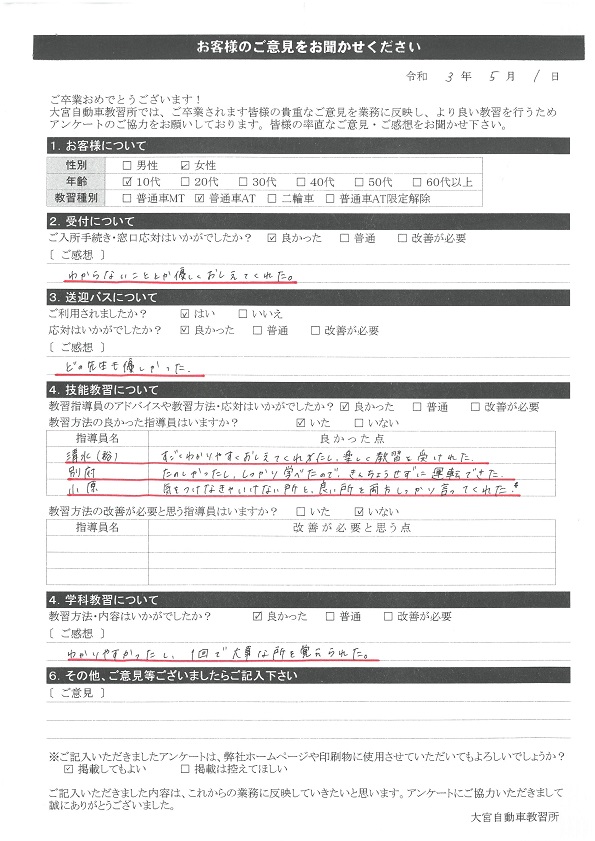 お客様のご意見をお聞かせください
令和 3 年 5 月 1 日
ご卒業おめでとうございます！
大宮自動車教習所では、ご卒業されます皆様の貴重なご意見を業務に反映し、より良い教習を行うため
アンケートのご協力をお願いしております。皆様の率直なご意見・ご感想をお聞かせ下さい。
1. お客様について
性別 □ 男性 ☑ 女性
年齢 ☑ 10代 □ 20代 □ 30代 □ 40代 □ 50代 □ 60代以上
教習種別 □ 普通車MT ☑ 普通車AT □ 二輪車 □ 普通車AT限定解除
2. 受付について
ご入所手続き・窓口応対はいかがでしたか？ ☑ 良かった □ 普通 □ 改善が必要
〔 ご感想 〕
わからないこととか優しくおしえてくれた。
3. 送迎バスについて
ご利用されましたか？ ☑ はい □ いいえ
応対はいかがでしたか？ ☑ 良かった □ 普通 □ 改善が必要
〔 ご感想 〕
どの先生も優しかった.
4. 技能教習について
教習指導員のアドバイスや教習方法・応対はいかがでしたか？ ☑ 良かった □ 普通 □ 改善が必要
教習方法の良かった指導員はいますか？ ☑ いた □ いない
指導員名 良かった点
清水(裕) すごくわかりやすくおしえてくれたし、楽しく教習を受けれた.
別府 たのしかったし、しっかり学べたので、きんちょうせずに運転できた.
小原 気をつけなきゃいけない所と、良い所を両方しっかり言ってくれた!
教習方法の改善が必要と思う指導員はいますか？ □ いた ☑ いない
指導員名 改善が必要と思う点
4. 学科教習について
教習方法・内容はいかがでしたか？ ☑ 良かった □ 普通 □ 改善が必要
〔 ご感想 〕
わかりやすかったし、1回で大事な所を覚えられた。
6. その他、ご意見等ございましたらご記入下さい
〔 ご意見 〕
※ご記入いただきましたアンケートは、弊社ホームページや印刷物に使用させていただいてもよろしいでしょうか？
☑ 掲載してもよい □ 掲載は控えてほしい
ご記入いただきました内容は、これからの業務に反映していきたいと思います。アンケートにご協力いただきまして
誠にありがとうございました。
大宮自動車教習所